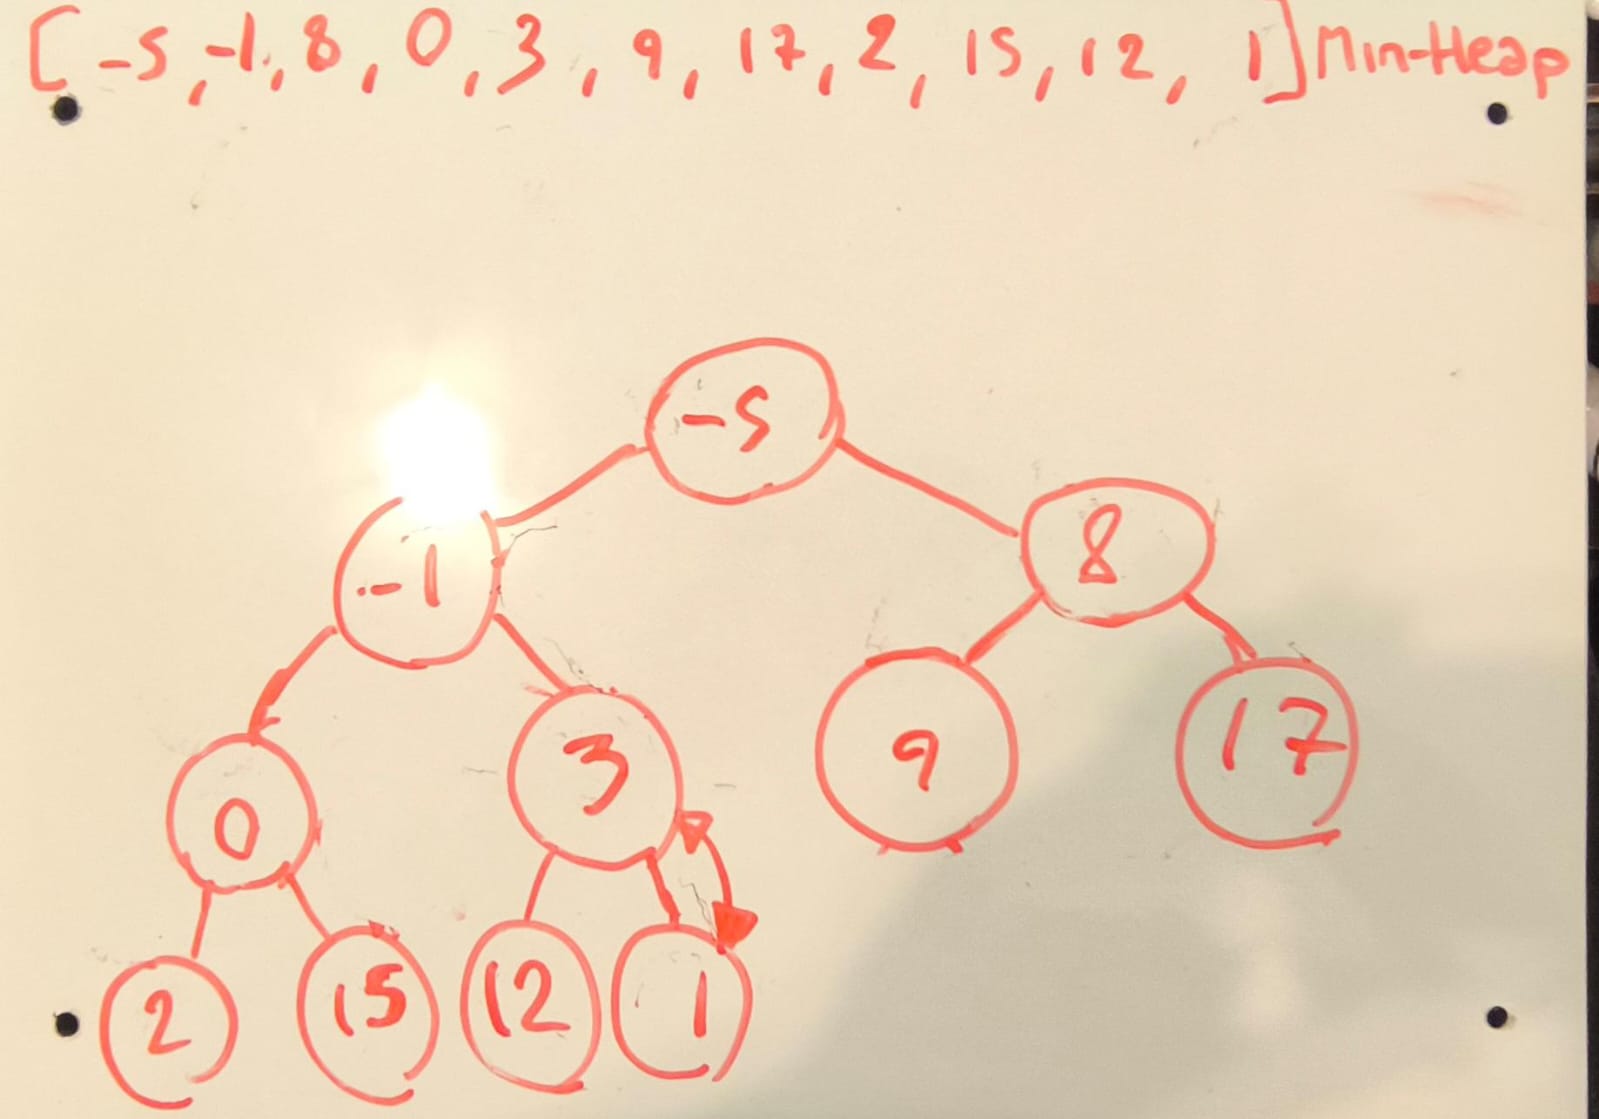 [-5, -1, 8, 0, 3, 9, 17, 2, 15, 12, 1] Min-Heap
-5
-1 8
0 3 9 17
2 15 12 1